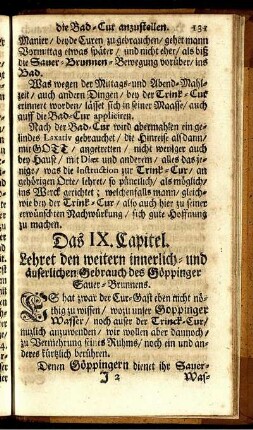 die Bad-Cur anzustellen. 131
Manier / beyde Curen zu gebrauchen / gehet mann
Vormittag etwas später / und nicht eher / als biß
die Sauer-Brunnen-Bewegung vorüber / ins
Bad.
Was wegen der Mittags- und Abend-Mahl-
zeit / auch andern Dingen / bey der Trink-Cur
erinnert worden / lässet sich in seiner Maasse / auch
auff die Bad-Cur appliciren.
Nach der Bad-Cur wird abermahlen ein ge-
lindes Laxativ gebraucht / die Hinreise alsdann /
mit GOTT / angetretten / nicht weniger auch
bey Hause / mit Diæt und anderem / alles dasje-
nige / was die Instruction zur Trink-Cur / an
gehörigen Orte / lehret / so pünctlich / als möglich /
ins Werck gerichtet; welchenfalls mann / gleich-
wie bey der Trink-Cur / also auch hier zu seiner
erwünschten Nachwürkung / sich gute Hoffnung
zu machen.
Das IX. Capitel.
Lehret den weitern innerlich- und
äuserlichen Gebrauch des Göppinger
Sauer-Brunnens.
ES hat zwar der Cur-Gast eben nicht nö-
thig zu wissen / wozu unser Göppinger
Wasser / noch auser der Trinck-Cur /
nuzlich anzuwenden / wir wollen aber dannoch /
zu Vermehrung seines Ruhms / noch ein und an-
deres kürtzlich berühren.
Denen Göppingern dienet ihr Sauer-
I 2 Was-